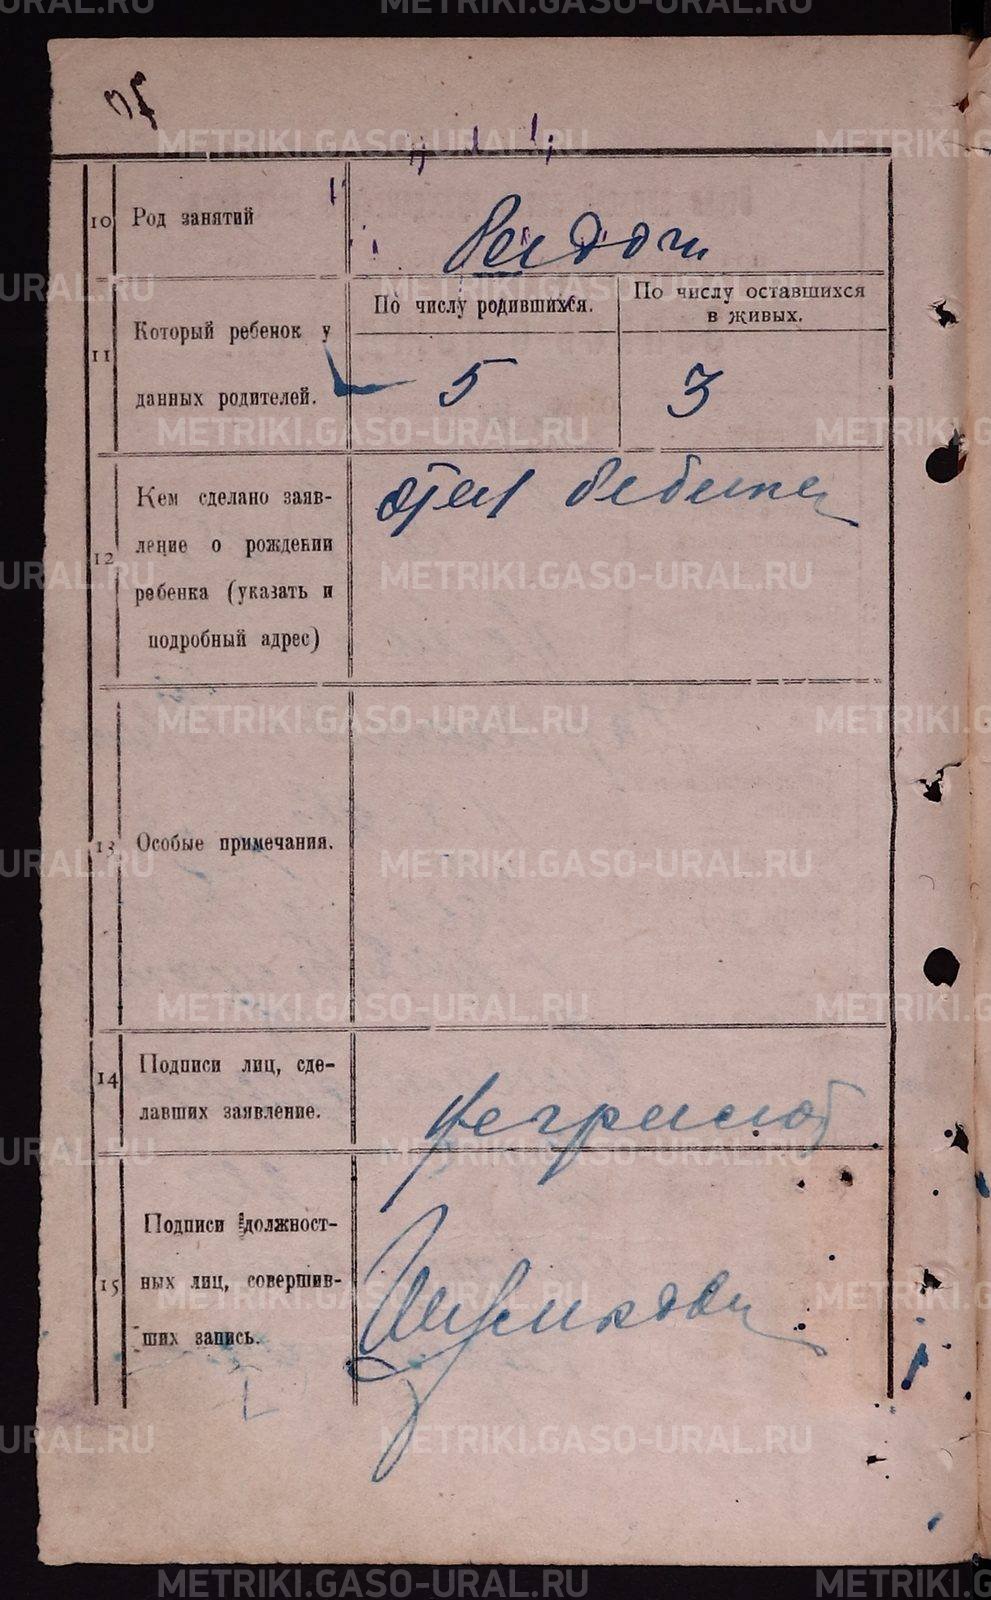 70
10 Род занятий
11 Который ребенок у данных родителей.
По числу родившихся.
По числу оставшихся
в живых.
5 3
12 Кем сделано заяв-
ление о рождении
ребенка (указать и
подробный адрес)
отец
13 Особые примечания.
14 Подписи лиц, сде-
лавших заявление.
15 Подписи должност-
ных лиц, совершив-
ших запись.
METRIKI.GASO-URAL.RU